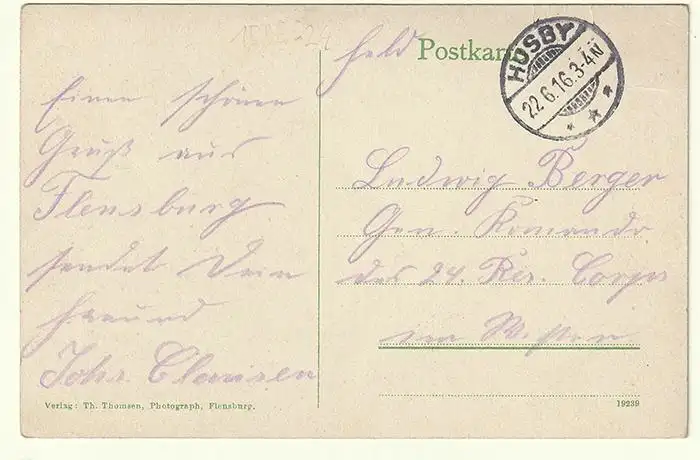 Feldpostkarte
HUSBY
22.6.16.3-4N
Einen schönen
Gruß aus
Flensburg
sendet Dein
Freund
Johs. Clausen
Ludwig Berger
Gen. Komando
des 24. Res. Corps
im Westen
Verlag: Th. Thomsen, Photograph, Flensburg.
19239